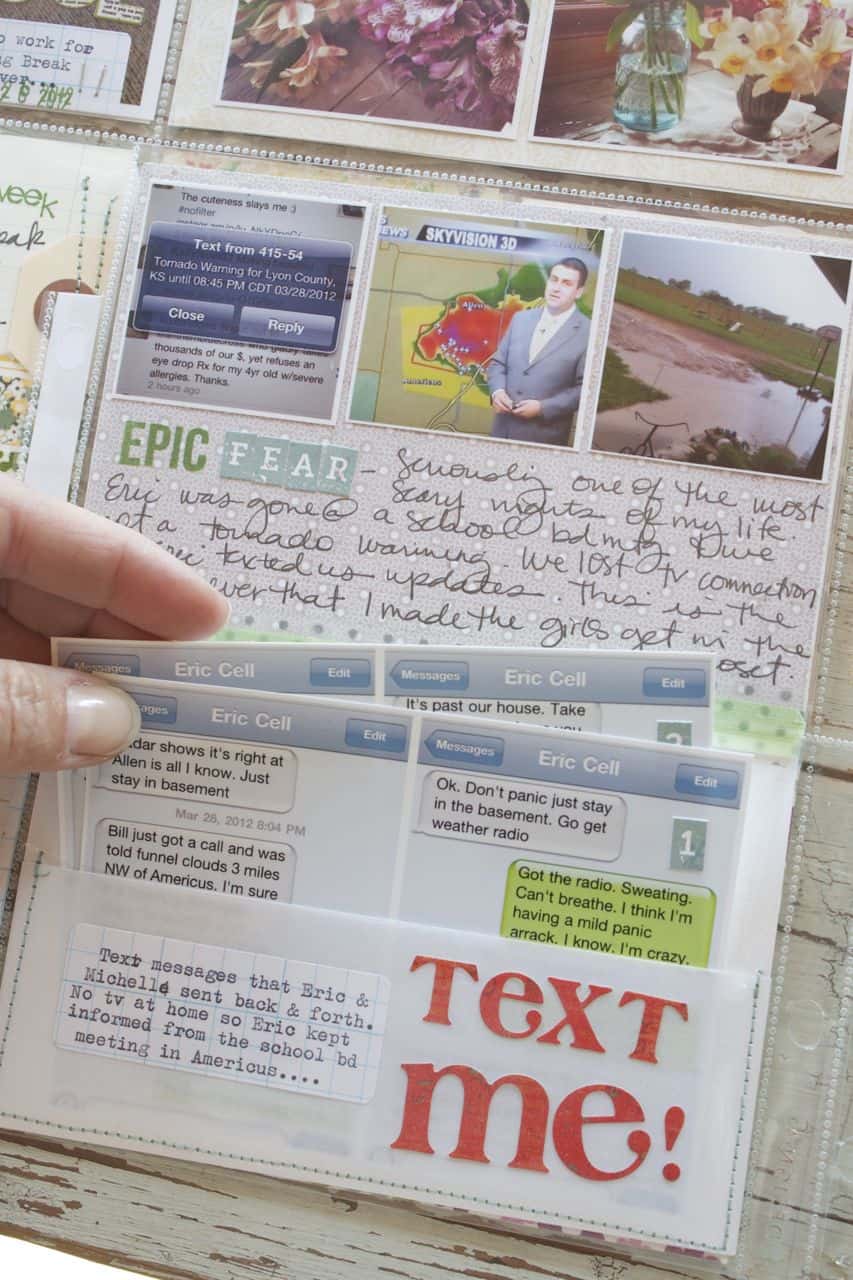 o work for
g Break
ver...
6 2012
week
eak
The cuteness slays me :)
#nofilter
Text from 415-54
Tornado Warning for Lyon County,
KS until 08:45 PM CDT 03/28/2012
Close Reply
thousands of our $, yet refuses an
eye drop Rx for my 4yr old w/severe
allergies. Thanks.
2 hours ago
NEWS SKYVISION 3D
Allen
Americus
EPIC FEAR - Seriously one of the most
scary nights of my life.
Eric was gone @ a school bd mtg & we
a tornado warning. We lost tv connection
texted us updates. This is the
ever that I made the girls get in the
oset.
Messages Eric Cell Edit
Messages Eric Cell Edit
It's past our house. Take
2
ages Eric Cell Edit
dar shows it's right at
Allen is all I know. Just
stay in basement
Mar 28, 2012 8:04 PM
Bill just got a call and was
told funnel clouds 3 miles
NW of Americus. I'm sure
Messages Eric Cell Edit
Ok. Don't panic just stay
in the basement. Go get
weather radio
1
Got the radio. Sweating.
Can't breathe. I think I'm
having a mild panic
arrack. I know. I'm crazy.
Text messages that Eric &
Michelle sent back & forth.
No tv at home so Eric kept
informed from the school bd
meeting in Americus....
TEXT
me!